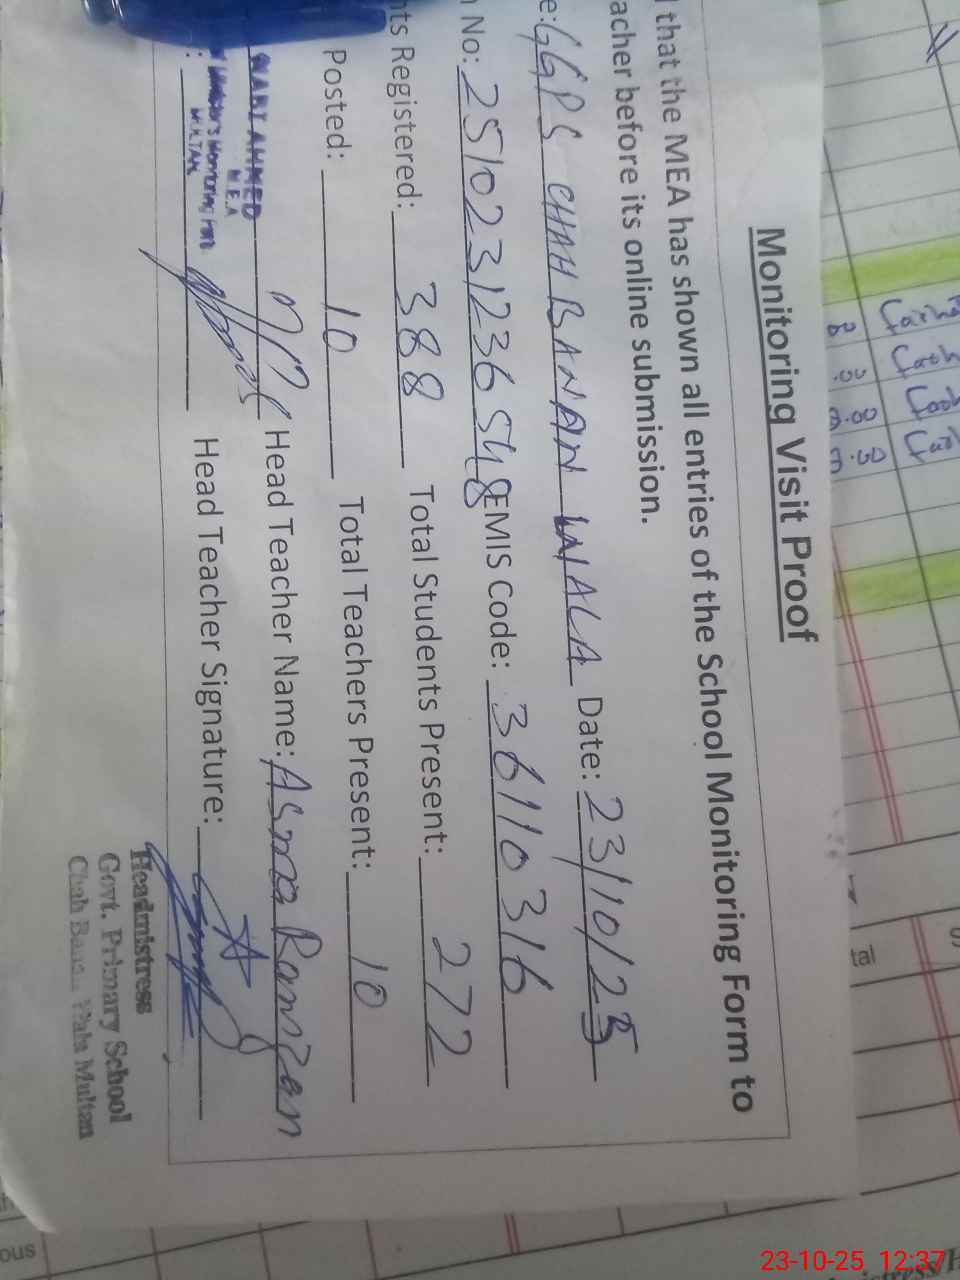 Monitoring Visit Proof
that the MEA has shown all entries of the School Monitoring Form to
acher before its online submission.
e: GGPS CHAH BANAN WALA Date: 23/10/25
No: 2510231236548 EMIS Code: 36110316
nts Registered: 388 Total Students Present: 272
Posted: 10 Total Teachers Present: 10
AHMED Head Teacher Name: Asma Ramzan
M.E.A
Monitoring
MULTAN
: Head Teacher Signature:
Headmistress
Govt. Primary School
Chah Multan
tal
ous
23-10-25 12:37